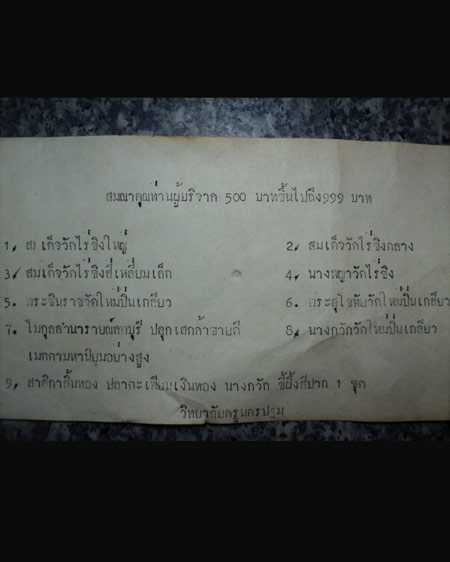 สมณาคุณท่านผู้บริจาค 500 บาทขึ้นไปถึง999 บาท
1, สมเด็จวัดไร่ขิงใหญ่ 2, สมเด็จวัดไร่ขิงกลาง
3, สมเด็จวัดไร่ขิงสี่เหลี่ยมเล็ก 4, นางพญาวัดไร่ขิง
5. พระชินราชวัดใหม่ปิ่นเกลียว 6. พระสุโขทัยวัดใหม่ปิ่นเกลียว
7. ลพบุรี ปลุกเสกค้าขายดี 8, นางกวักวัดใหม่ปิ่นเกลียว
เมตตามหานิยมอย่างสูง
9, สาริกาลิ้นทอง ปลาตะเพียนเงินทอง นางกวัก ขี้ผึ้งสีปาก 1 ชุด
วิทยาลัยครูนครปฐม